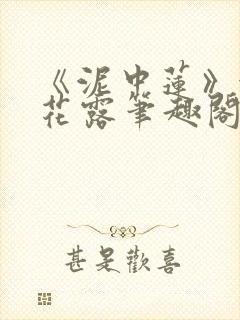 《泥中蓮》
花露筆趣閣
甚是歡喜